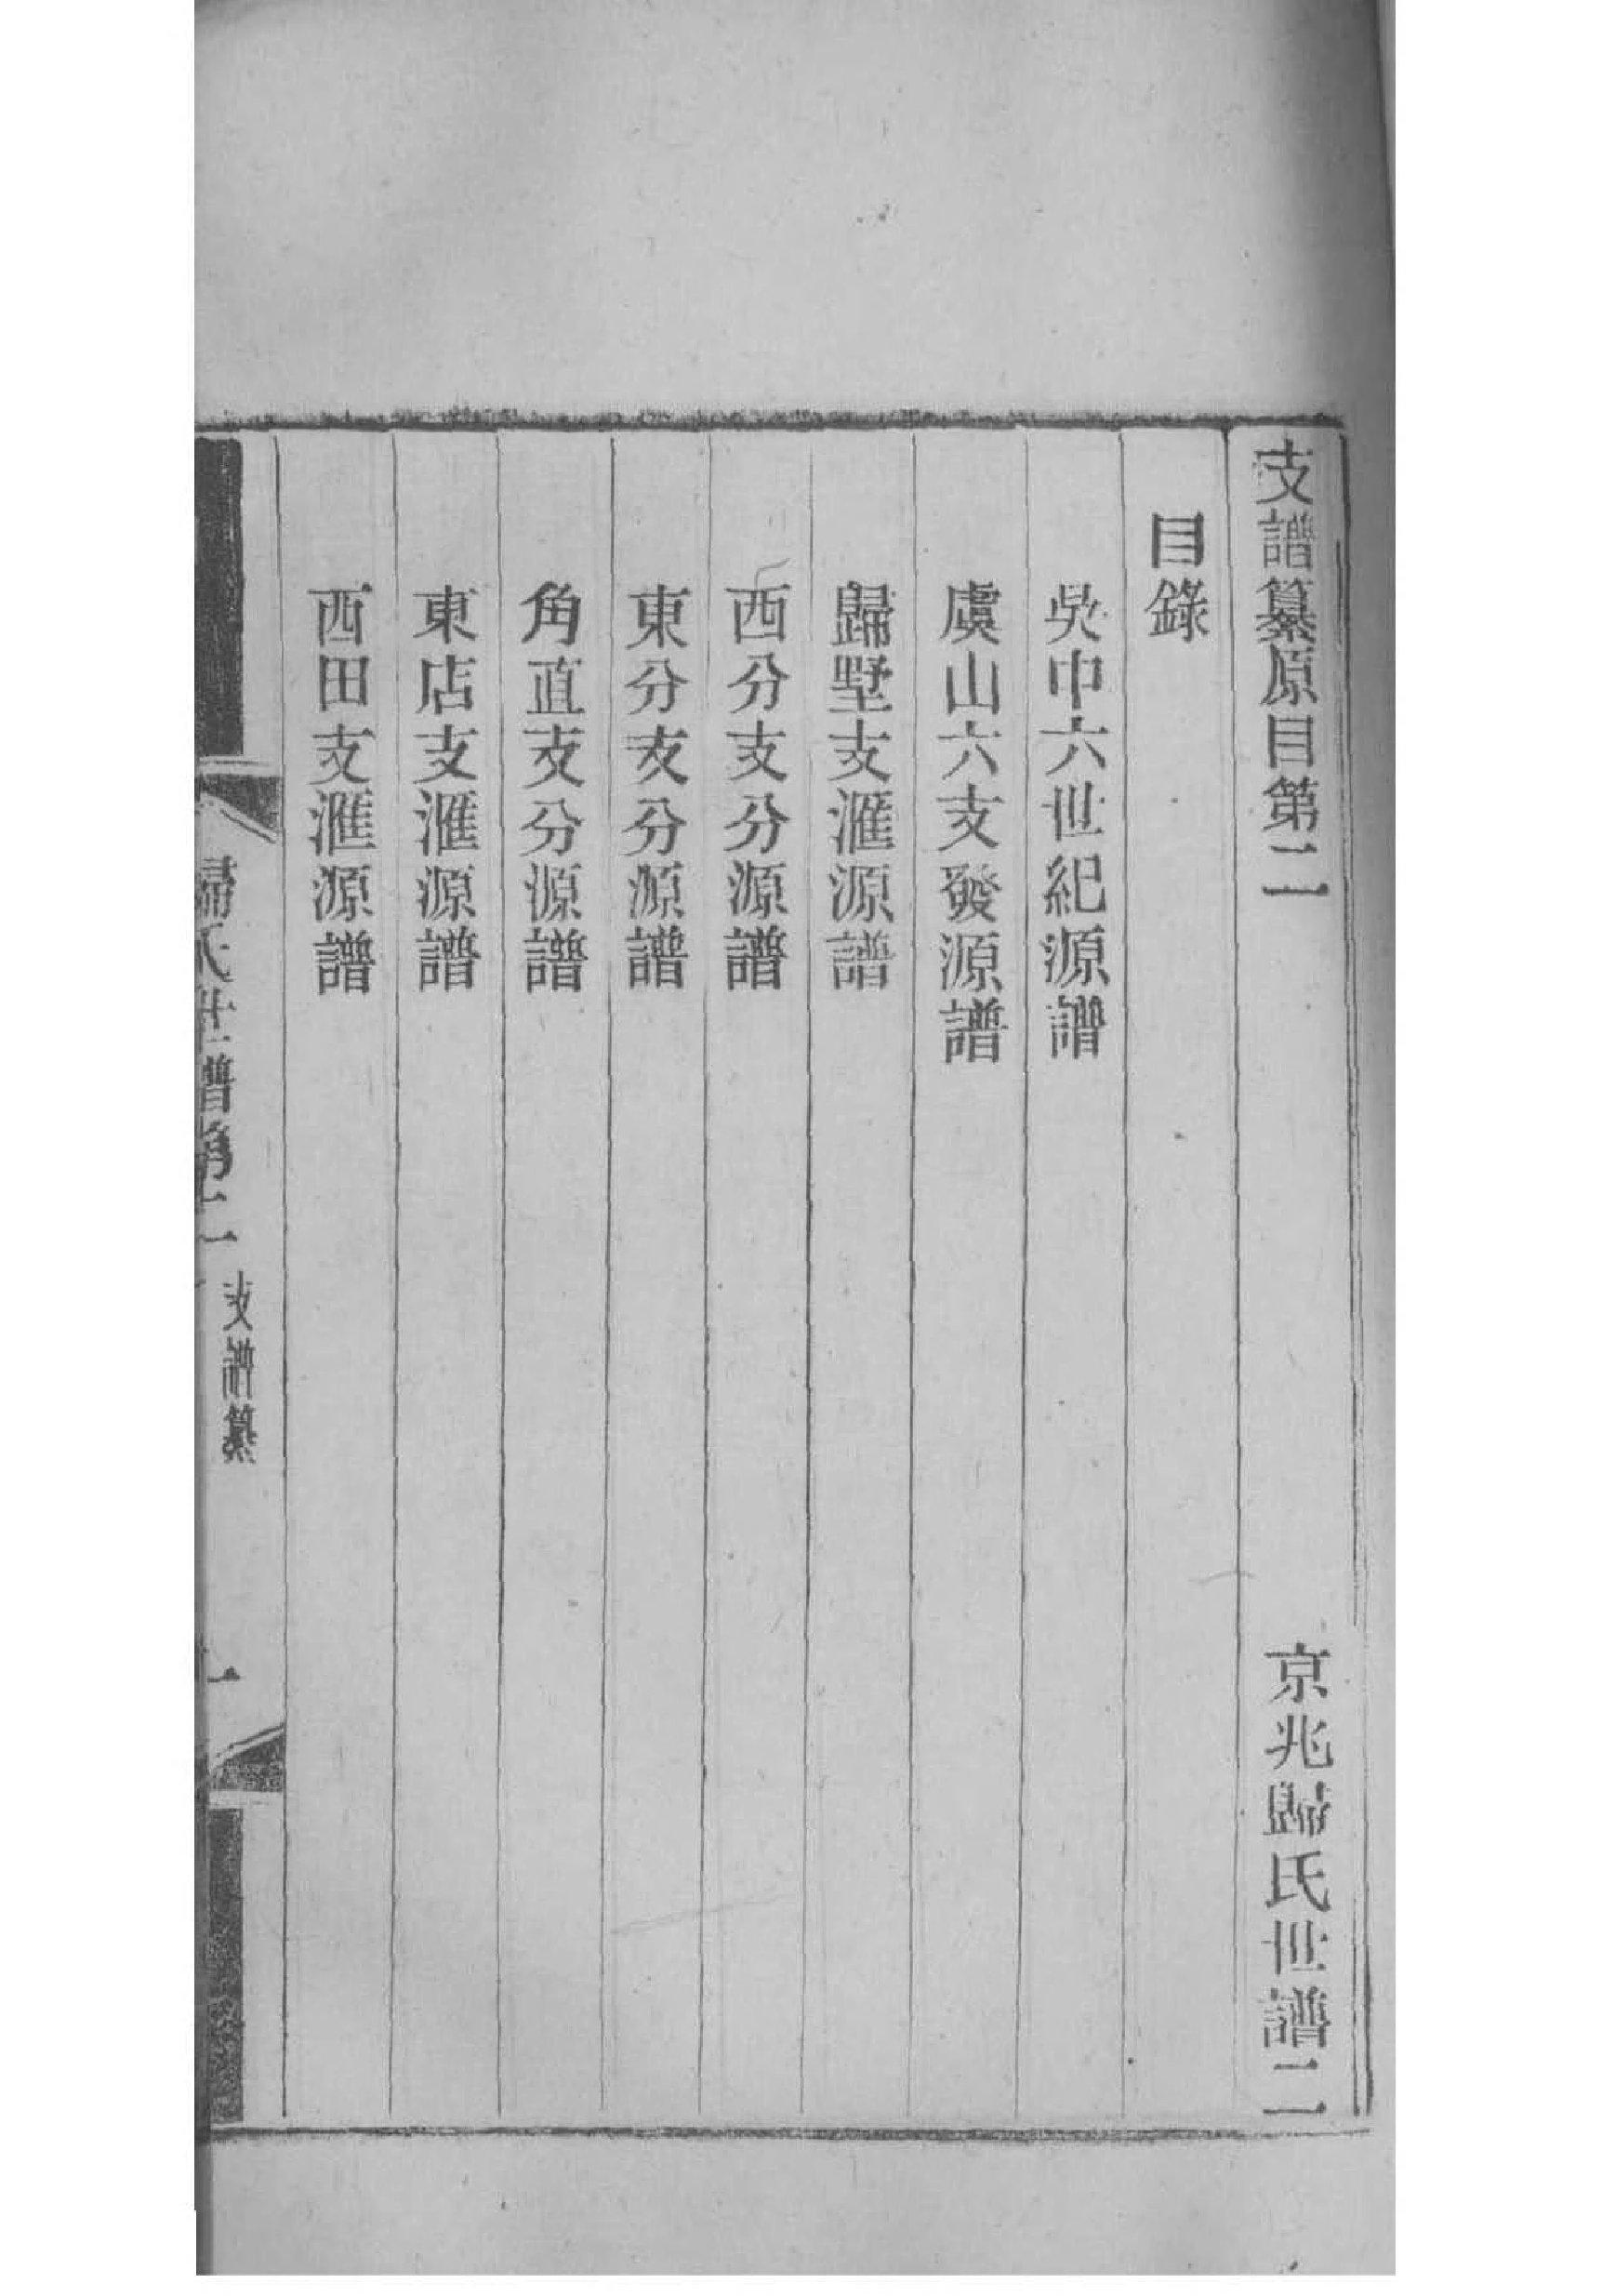 支譜纂原目第二 京兆歸氏世譜二
目錄
吳中六世紀源譜
虞山六支發源譜
歸墅支滙源譜
西分支分源譜
東分支分源譜
角直支分源譜
東店支滙源譜
西田支滙源譜
歸氏世譜第二 支譜纂 一